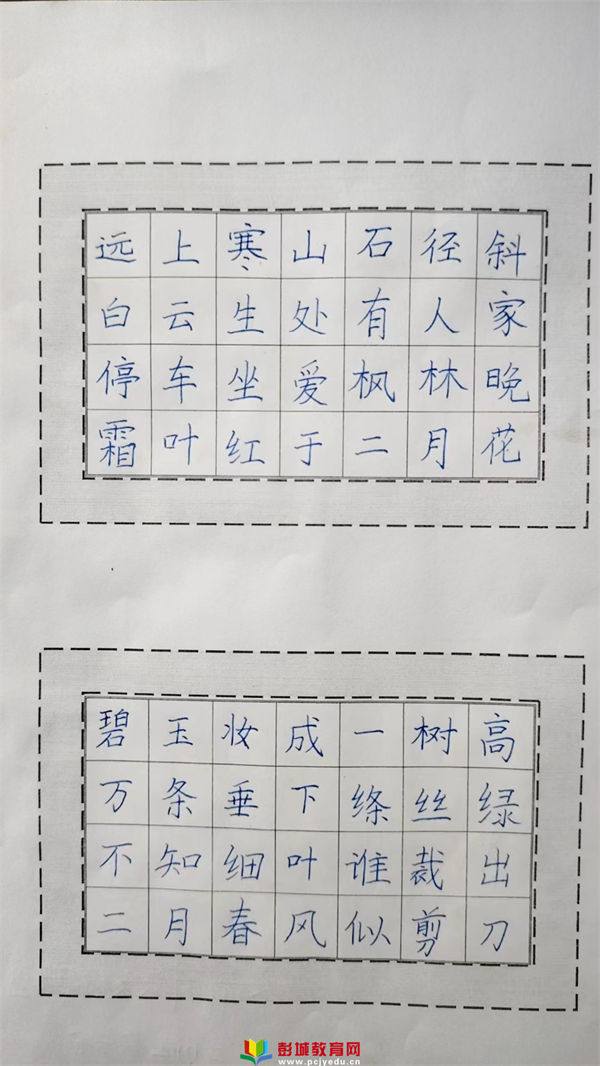 远上寒山石径斜
白云生处有人家
停车坐爱枫林晚
霜叶红于二月花
碧玉妆成一树高
万条垂下绦丝绿
不知细叶谁裁出
二月春风似剪刀
彭城教育网
www.pcjyedu.cn